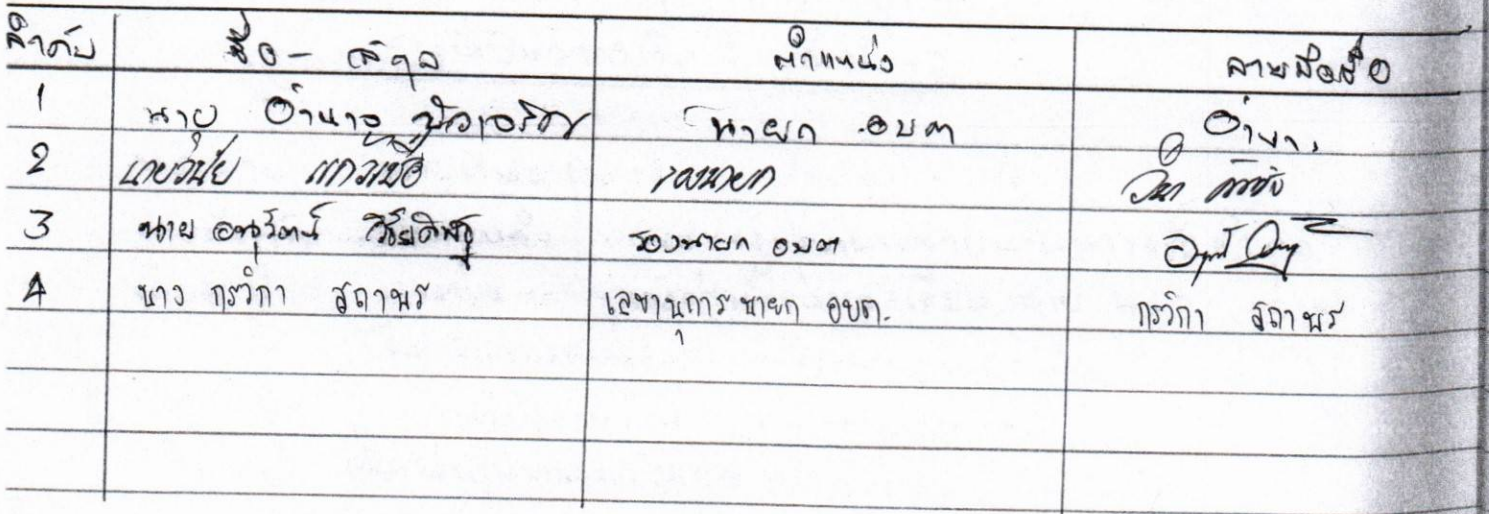 ลำดับ ชื่อ สกุล ตำแหน่ง ลายมือชื่อ
1 นาย อำนาจ นายก อบต อำนา.
2 นายวินัย แก้วแข็ง รองนายก
3 นาย อนุวัตน์ รองนายก อบต
4 นาง กรวิกา สถาพร เลขานุการนายก อบต. กรวิกา สถาพร